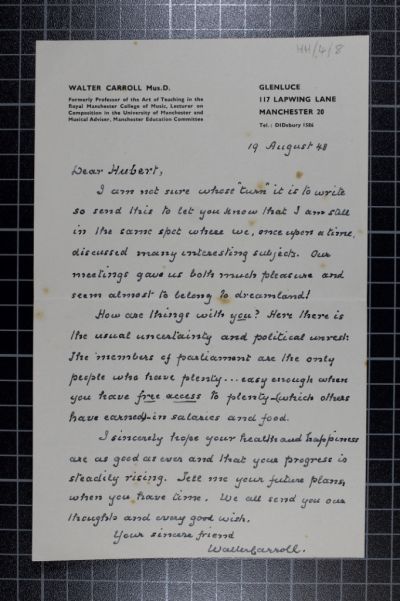 HH/4/8
WALTER CARROLL Mus.D.
Formerly Professor of the Art of Teaching in the
Royal Manchester College of Music, Lecturer on
Composition in the University of Manchester and
Musical Adviser, Manchester Education Committee
GLENLUCE
117 LAPWING LANE
MANCHESTER 20
Tel.: DIDsbury 1586
19 August 48
Dear Hubert,
I am not sure whose "turn" it is to write
so send this to let you know that I am still
in the same spot where we, once upon a time,
discussed many interesting subjects. Our
meetings gave us both much pleasure and
seem almost to belong to dreamland!
How are things with you? Here there is
the usual uncertainty and political unrest.
The members of parliament are the only
people who have plenty... easy enough when
you have free access to plenty-(which others
have earned)-in salaries and food.
I sincerely hope your health and happiness
are as good as ever and that your progress is
steadily rising. Tell me your future plans,
when you have time. We all send you our
thoughts and every good wish.
Your sincere friend
Walter Carroll.